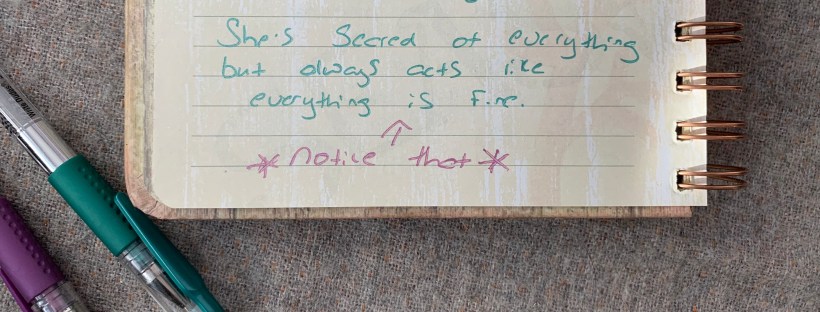 She's Scared of everything
but always acts like
everything is fine.
*notice that*